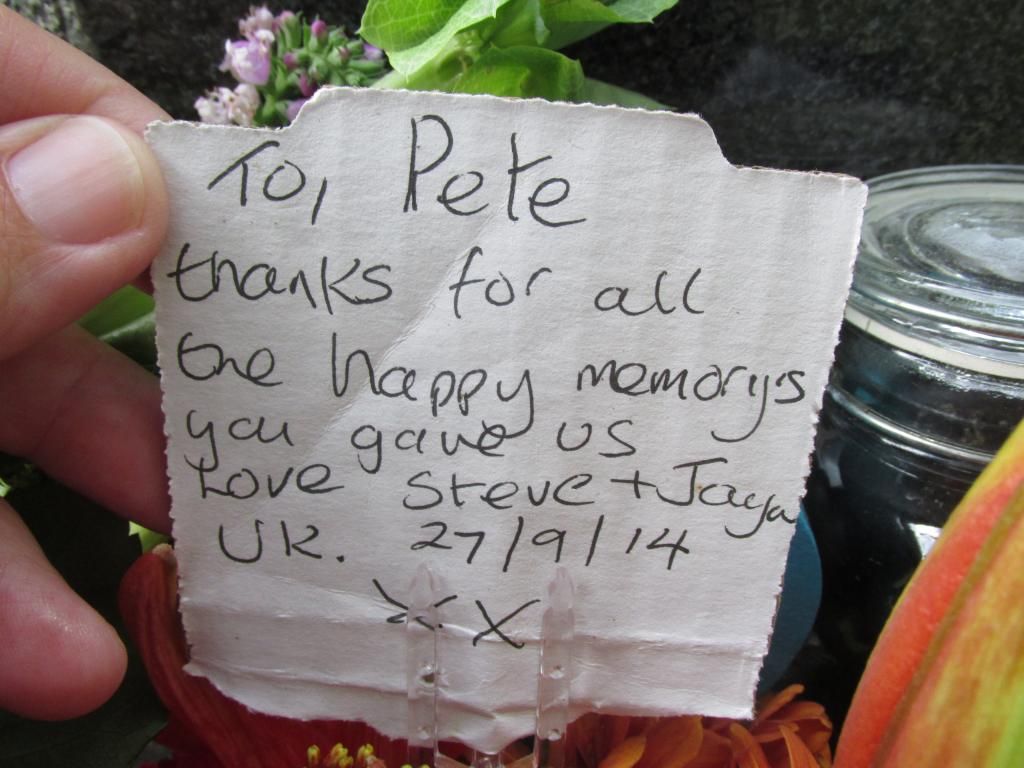 To, Pete
thanks for all
the happy memorys
you gave us
Love Steve + Jaya
UK. 27/9/14
X X